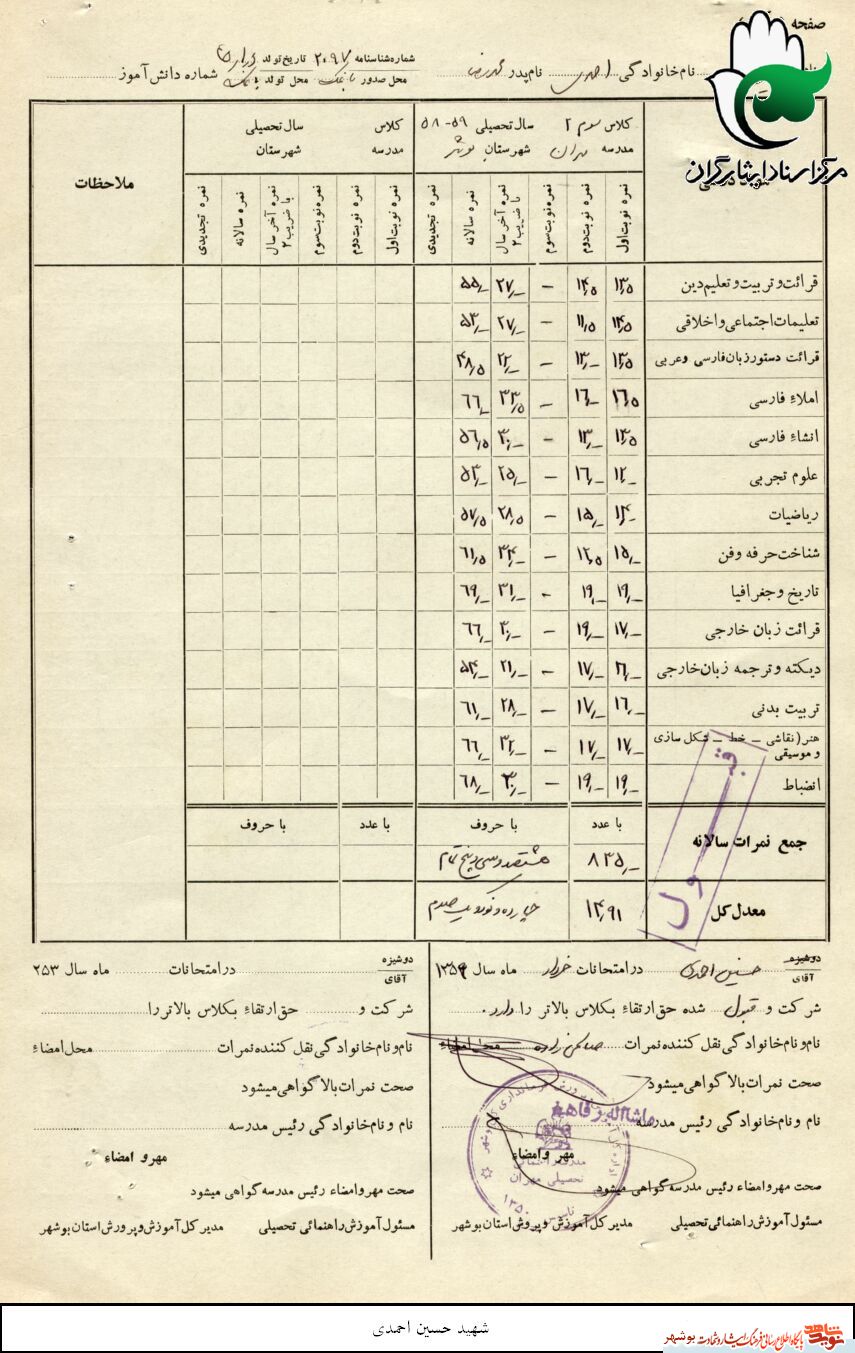 صفحه
مرکز اسناد ایثارگران
نام خانوادگی احمدی نام پدر شماره شناسنامه ۲۰۹۷ تاریخ تولد
محل صدور محل تولد شماره دانش آموز
کلاس سوم ۲ سال تحصیلی ۵۹-۵۸
مدرسه مهران شهرستان بوشهر
کلاس سال تحصیلی
مدرسه شهرستان
ملاحظات
نمره نوبت اول نمره نوبت دوم نمره نوبت سوم نمره آخر سال با ضریب ۲ نمره سالانه نمره تجدیدی
نمره نوبت اول نمره نوبت دوم نمره نوبت سوم نمره آخر سال با ضریب ۲ نمره سالانه نمره تجدیدی
قرائت و تربیت و تعلیم دین ۱۳/۵ ۱۴/۵ – ۲۷/– ۵۵/–
تعلیمات اجتماعی و اخلاقی ۱۴/۵ ۱۱/۵ – ۲۷/– ۵۳/–
قرائت دستور زبان فارسی و عربی ۱۳/۵ ۱۳/– – ۲۲/– ۴۸/۵
املاء فارسی ۱۶/۵ ۱۶/– – ۳۳/۵ ۶۶/–
انشاء فارسی ۱۳/۵ ۱۳/– – ۳۰/– ۵۶/۵
علوم تجربی ۱۲/– ۱۶/– – ۲۵/– ۵۳/–
ریاضیات ۱۴/– ۱۵/– – ۲۸/۵ ۵۷/۵
شناخت حرفه و فن ۱۵/– ۱۲/۵ – ۳۴/– ۶۱/۵
تاریخ و جغرافیا ۱۹/– ۱۹/– – ۳۱/– ۶۹/–
قرائت زبان خارجی ۱۷/– ۱۹/– – ۳۰/– ۶۶/–
دیکته و ترجمه زبان خارجی ۱۷/– – ۲۱/– ۵۴/–
تربیت بدنی ۱۶/– ۱۷/– – ۲۸/– ۶۱/–
هنر (نقاشی – خط – شکل سازی و موسیقی ۱۷/– ۱۷/– – ۳۲/– ۶۶/–
انضباط ۱۹/– ۱۹/– – ۳۰/– ۶۸/–
قبول
با عدد با حروف با عدد با حروف
جمع نمرات سالانه ۸۳۵/– هشتصد و سی و پنج تمام
معدل کل ۱۴/۹۱ چهارده و نود و یک صدم
دوشیزه
آقای حسین احمدی در امتحانات خرداد ماه سال ۱۳۵۹
شرکت و قبول شده حق ارتقاء بکلاس بالاتر را دارد.
نام و نام خانوادگی نقل کننده نمرات محل امضاء
صحت نمرات بالا گواهی میشود
نام و نام خانوادگی رئیس مدرسه ماشااله
مهر و امضاء
صحت مهر و امضاء رئیس مدرسه گواهی میشود
مسئول آموزش راهنمائی تحصیلی مدیر کل آموزش و پرورش استان بوشهر
دوشیزه
آقای در امتحانات ماه سال ۲۵۳
شرکت و حق ارتقاء بکلاس بالاتر را
نام و نام خانوادگی نقل کننده نمرات محل امضاء
صحت نمرات بالا گواهی میشود
نام و نام خانوادگی رئیس مدرسه
مهر و امضاء
صحت مهر و امضاء رئیس مدرسه گواهی میشود
مسئول آموزش راهنمائی تحصیلی مدیر کل آموزش و پرورش استان بوشهر
شهید حسین احمدی
نوید شاهد پایگاه اطلاع رسانی فرهنگ ایثار و شهادت بوشهر